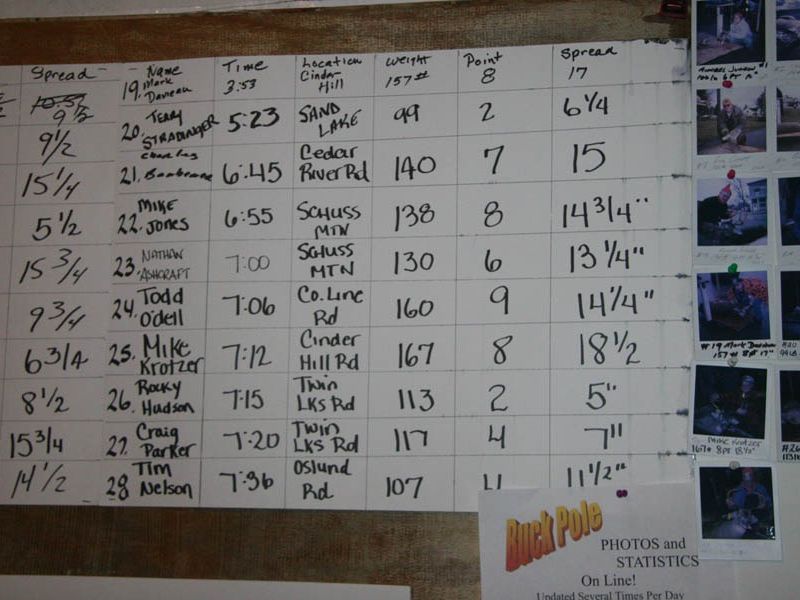 Spread
Name Time Location Weight Point Spread
19. Mark 3:53 Cinder Hill 157# 8 17
10.5
9 1/2
20. Terry 5:23 SAND LAKE 99 2 6 1/4
9 1/2
21. Charles 6:45 Cedar River Rd 140 7 15
15 1/4
22. MIKE Jones 6:55 SCHUSS MTN 138 8 14 3/4"
5 1/2
23. NATHAN ASHCRAFT 7:00 SCHUSS MTN 130 6 13 1/4"
15 3/4
24. Todd O'dell 7:06 Co. Line Rd 160 9 14 1/4"
9 3/4
25. Mike Krotzer 7:12 Cinder Hill Rd 167 8 18 1/2
6 3/4
26. Rocky Hudson 7:15 Twin LKS Rd 113 2 5"
8 1/2
27. Craig Parker 7:20 Twin LKS Rd 117 4 7"
15 3/4
28. Tim Nelson 7:36 Oslund Rd 107 4 11 1/2"
14 1/2
Buck Pole
PHOTOS and
STATISTICS
On Line!
Updated Several Times Per Day
#19 Mark
157# 8pt 17"
Mike Krotzer
167# 8pt 18 1/2"